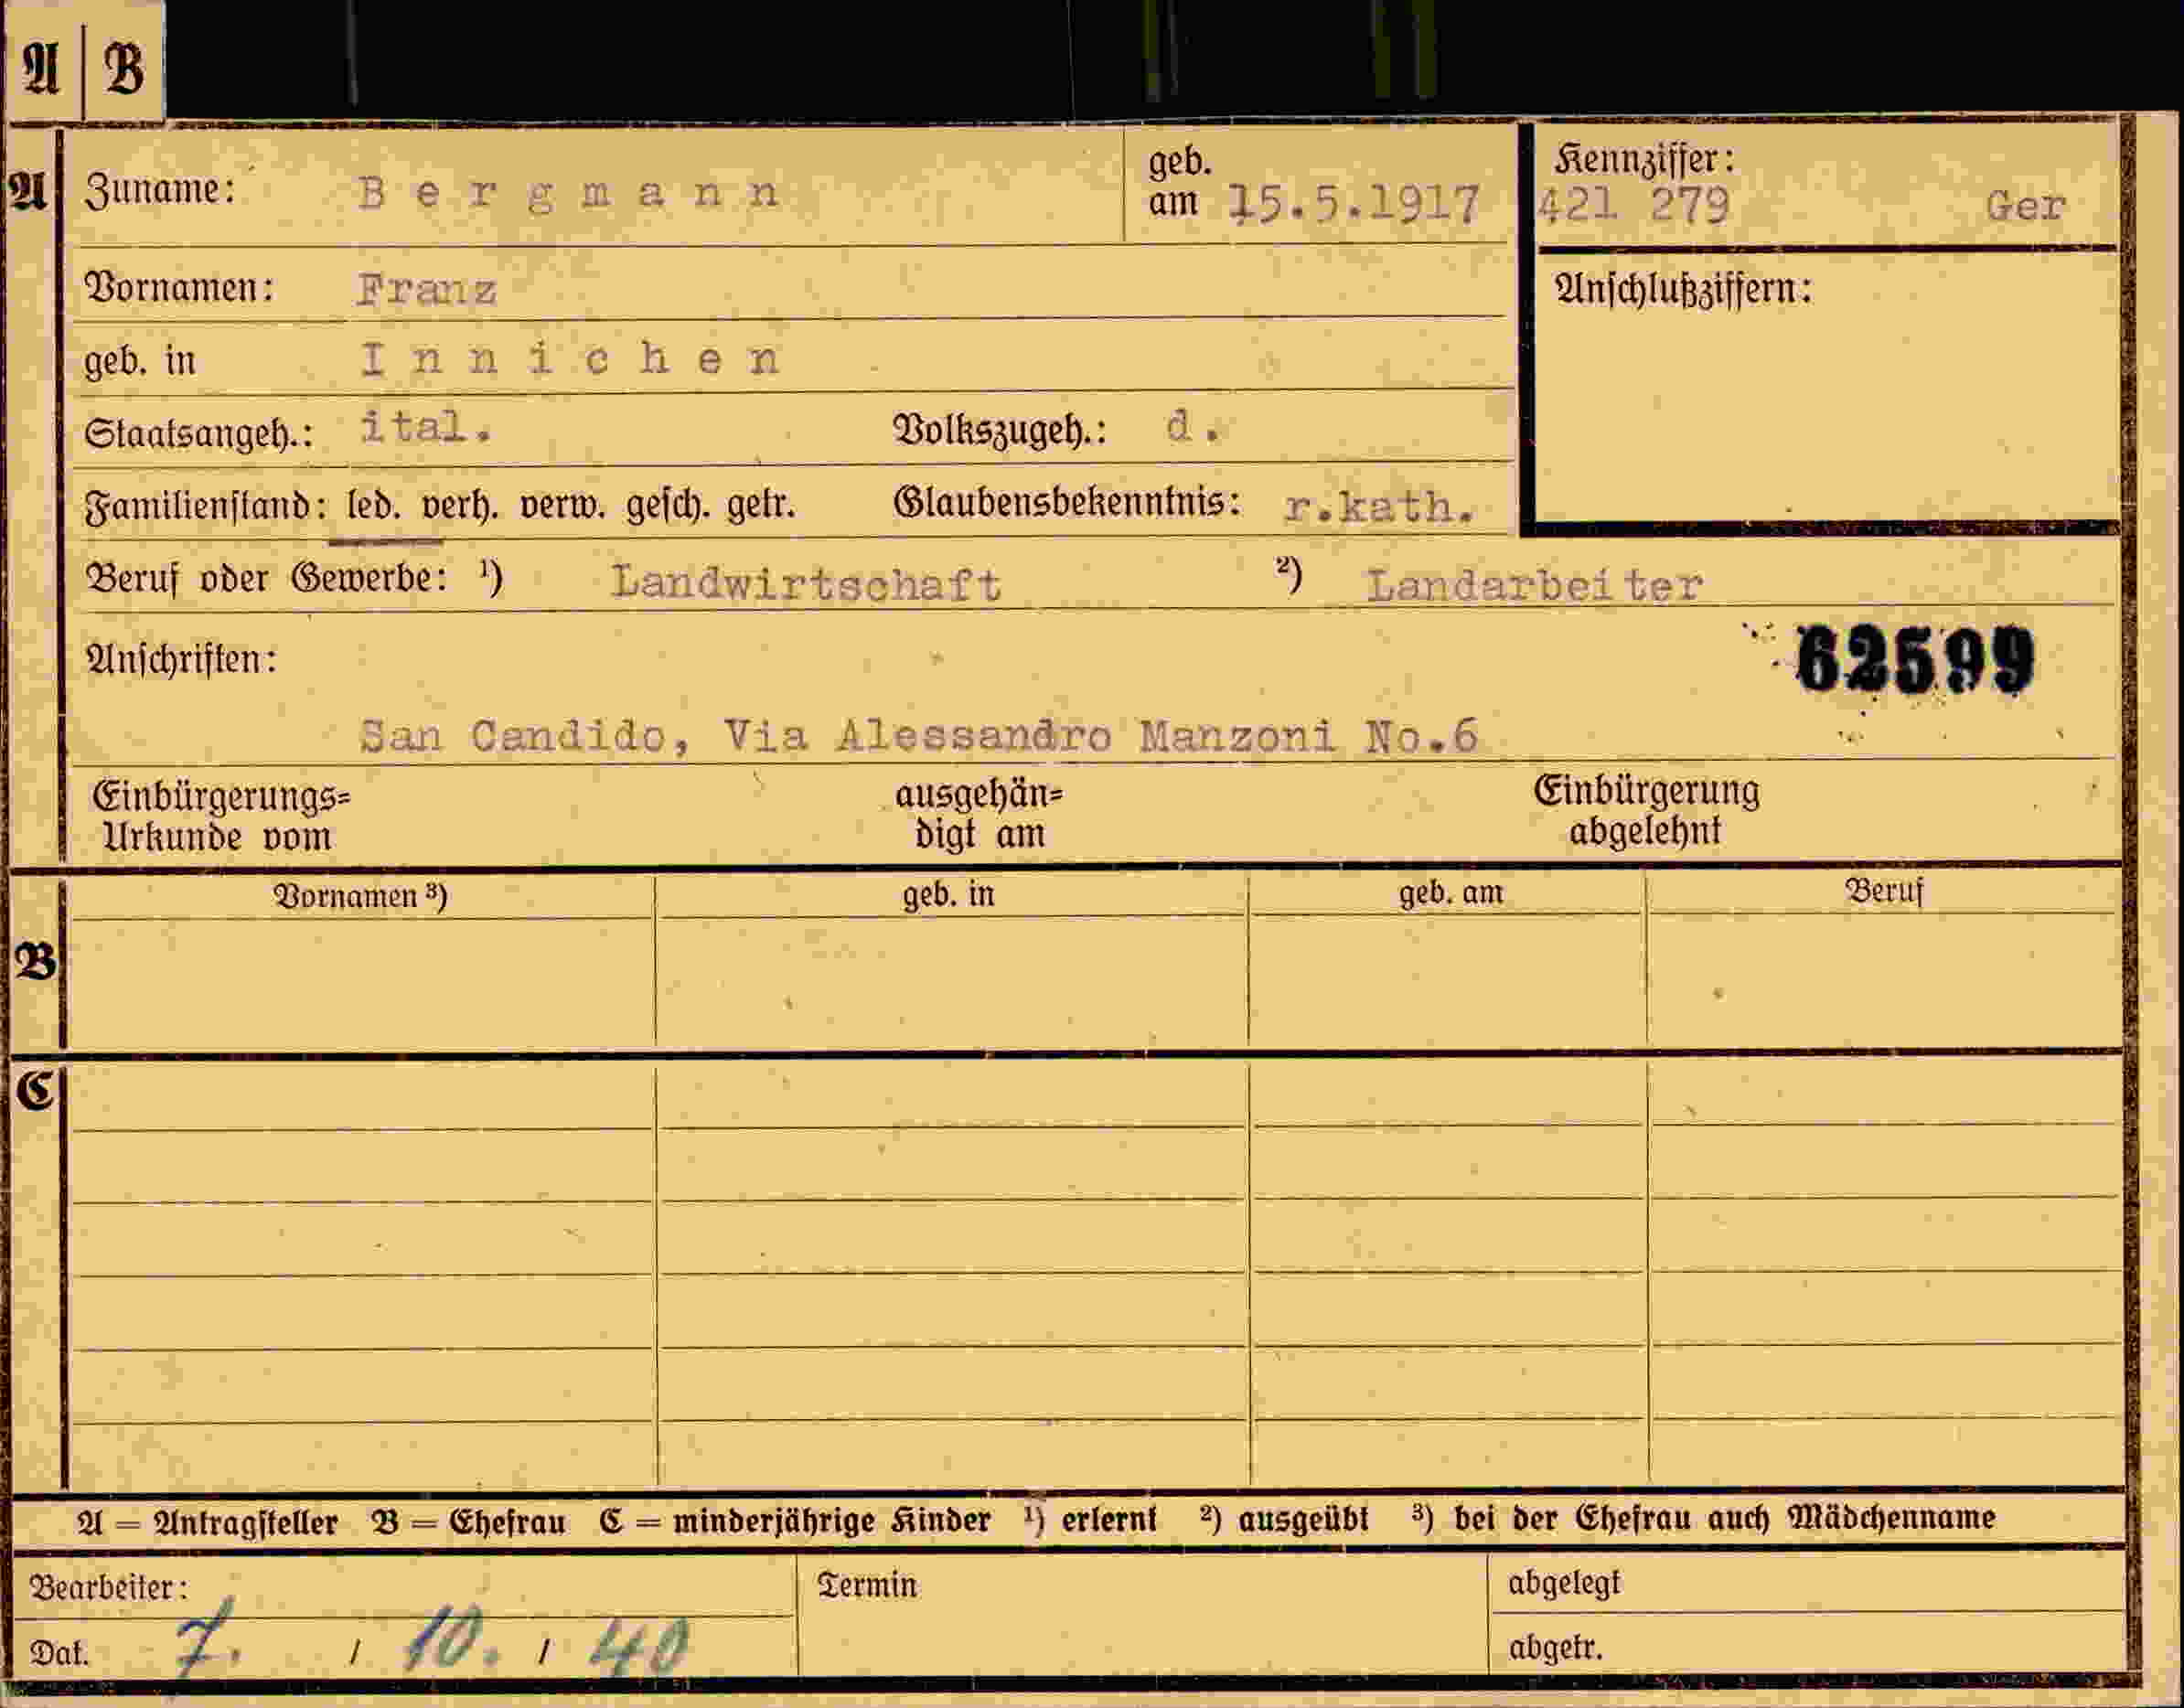 A | B
A Zuname: Bergmann geb. am 15.5.1917 Kennziffer: 421 279 Ger
Vornamen: Franz Anschlußziffern:
geb. in Innichen
Staatsangeh.: ital. Volkszugeh.: d.
Familienstand: led. verh. verw. gesch. getr. Glaubensbekenntnis: r.kath.
Beruf oder Gewerbe: ¹) Landwirtschaft ²) Landarbeiter
Anschriften: 62599
San Candido, Via Alessandro Manzoni No.6
Einbürgerungs= ausgehän= Einbürgerung
Urkunde vom digt am abgelehnt
Vornamen ³) geb. in geb. am Beruf
B
C
A = Antragsteller B = Ehefrau C = minderjährige Kinder ¹) erlernt ²) ausgeübt ³) bei der Ehefrau auch Mädchenname
Bearbeiter: Termin abgelegt
Dat. 7. / 10. / 40 abgetr.